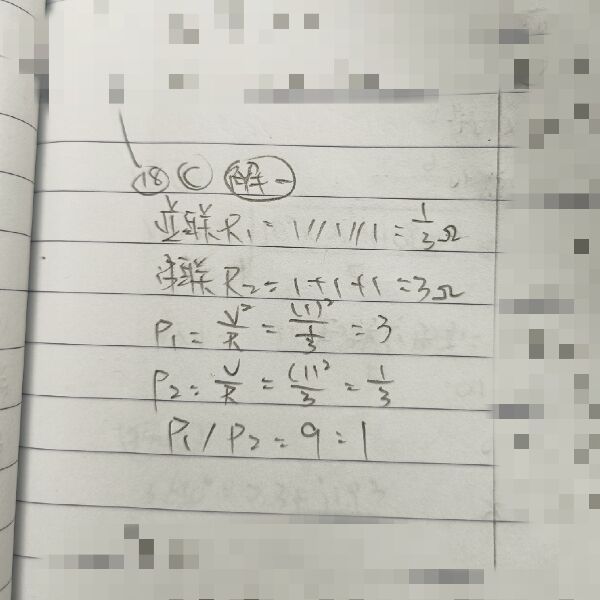 ⑱ Ⓒ 解一
並联R₁=1//1//1=1/3Ω
串联R₂=1+1+1=3Ω
P₁=V²/R=(1)²/(1/3)=3
P₂=V/R=(1)²/3=1/3
P₁/P₂=9=1